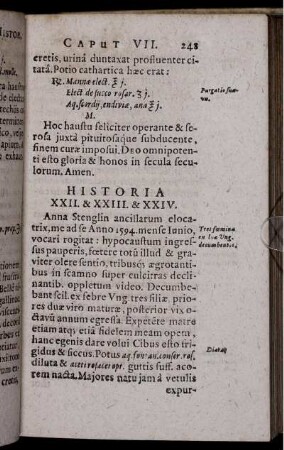 CAPUT VII. 248
cretis, urinâ duntaxat profluenter ci-
tatâ. Potio cathartica hæc erat:
℞. Mannæ elect. ℥ j.
Elect de succo rosar. ʒ j.
Aq. scordij, endiviæ, ana ℥ j.
M.
Purgatio
Hoc haustu feliciter operante & se-
rosa juxtà pituitosaque subducente,
finem curæ imposui. DEO omnipoten-
ti esto gloria & honos in secula secu-
lorum, Amen.
HISTORIA
XXII. & XXIII. & XXIV.
Anna Stenglin ancillarum eloca-
trix, me ad se Anno 1594. mense Iunio,
vocari rogitat: hypocaustum ingres-
sus pauperis, fœtere totũ illud & gra-
viter olere sentio, tribusq; ægrotanti-
bus in scamno super culcitras decli-
nantib. oppletum video. Decumbe-
bant scil. ex febre Vng tres filiæ, prio-
res duæ viro maturæ, posterior vix o-
ctavũ annum egressa. Expetêre matre
etiam atq; etiã fidelem meam opem,
hanc egenis dare volui Cibus esto fri-
gidus & siccus. Potus
diluta & guttis suff. aco-
rem nacta. Majores natu jam â vetulis
expur-
decumbentes.
Diæta